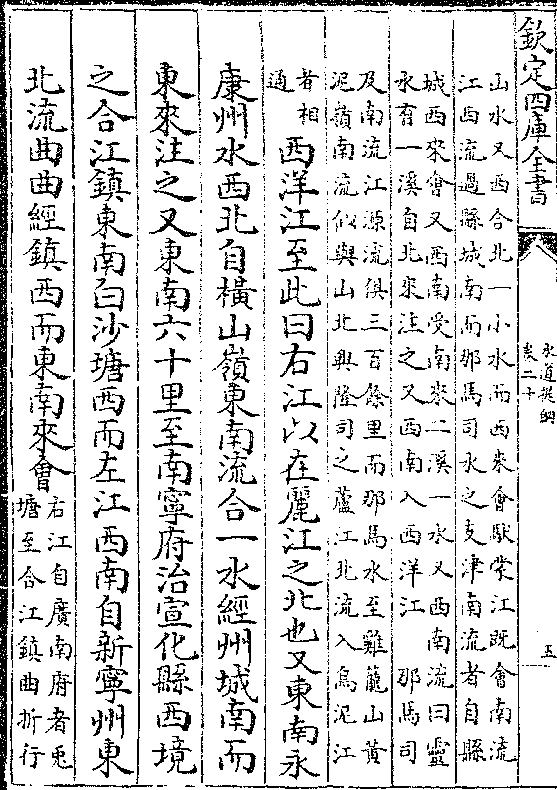 欽定四庫全書
水道提綱
卷二十
五
山水又西合北一小水而西來會馱蒙江既會南流
江西流過縣城南而那馬司水之支津南流者自縣
城西來會又西南受南來二溪一水又西南流曰靈
水有一溪自北來注之又西南入西洋江　那馬司
及南流江源流俱三百餘里而那馬水至雞籠山黄
泥嶺南流似與山北興隆司之蘆江北流入烏泥江
者相
通
西洋江至此曰右江以在麗江之北也又東南永
康州水西北自橫山嶺東南流合一水經州城南而
東來注之又東南六十里至南寧府治宣化縣西境
之合江鎮東南白沙塘西而左江西南自新寧州東
北流曲曲經鎮西而東南來會
右江自廣南府者兎
塘至合江鎮曲折行